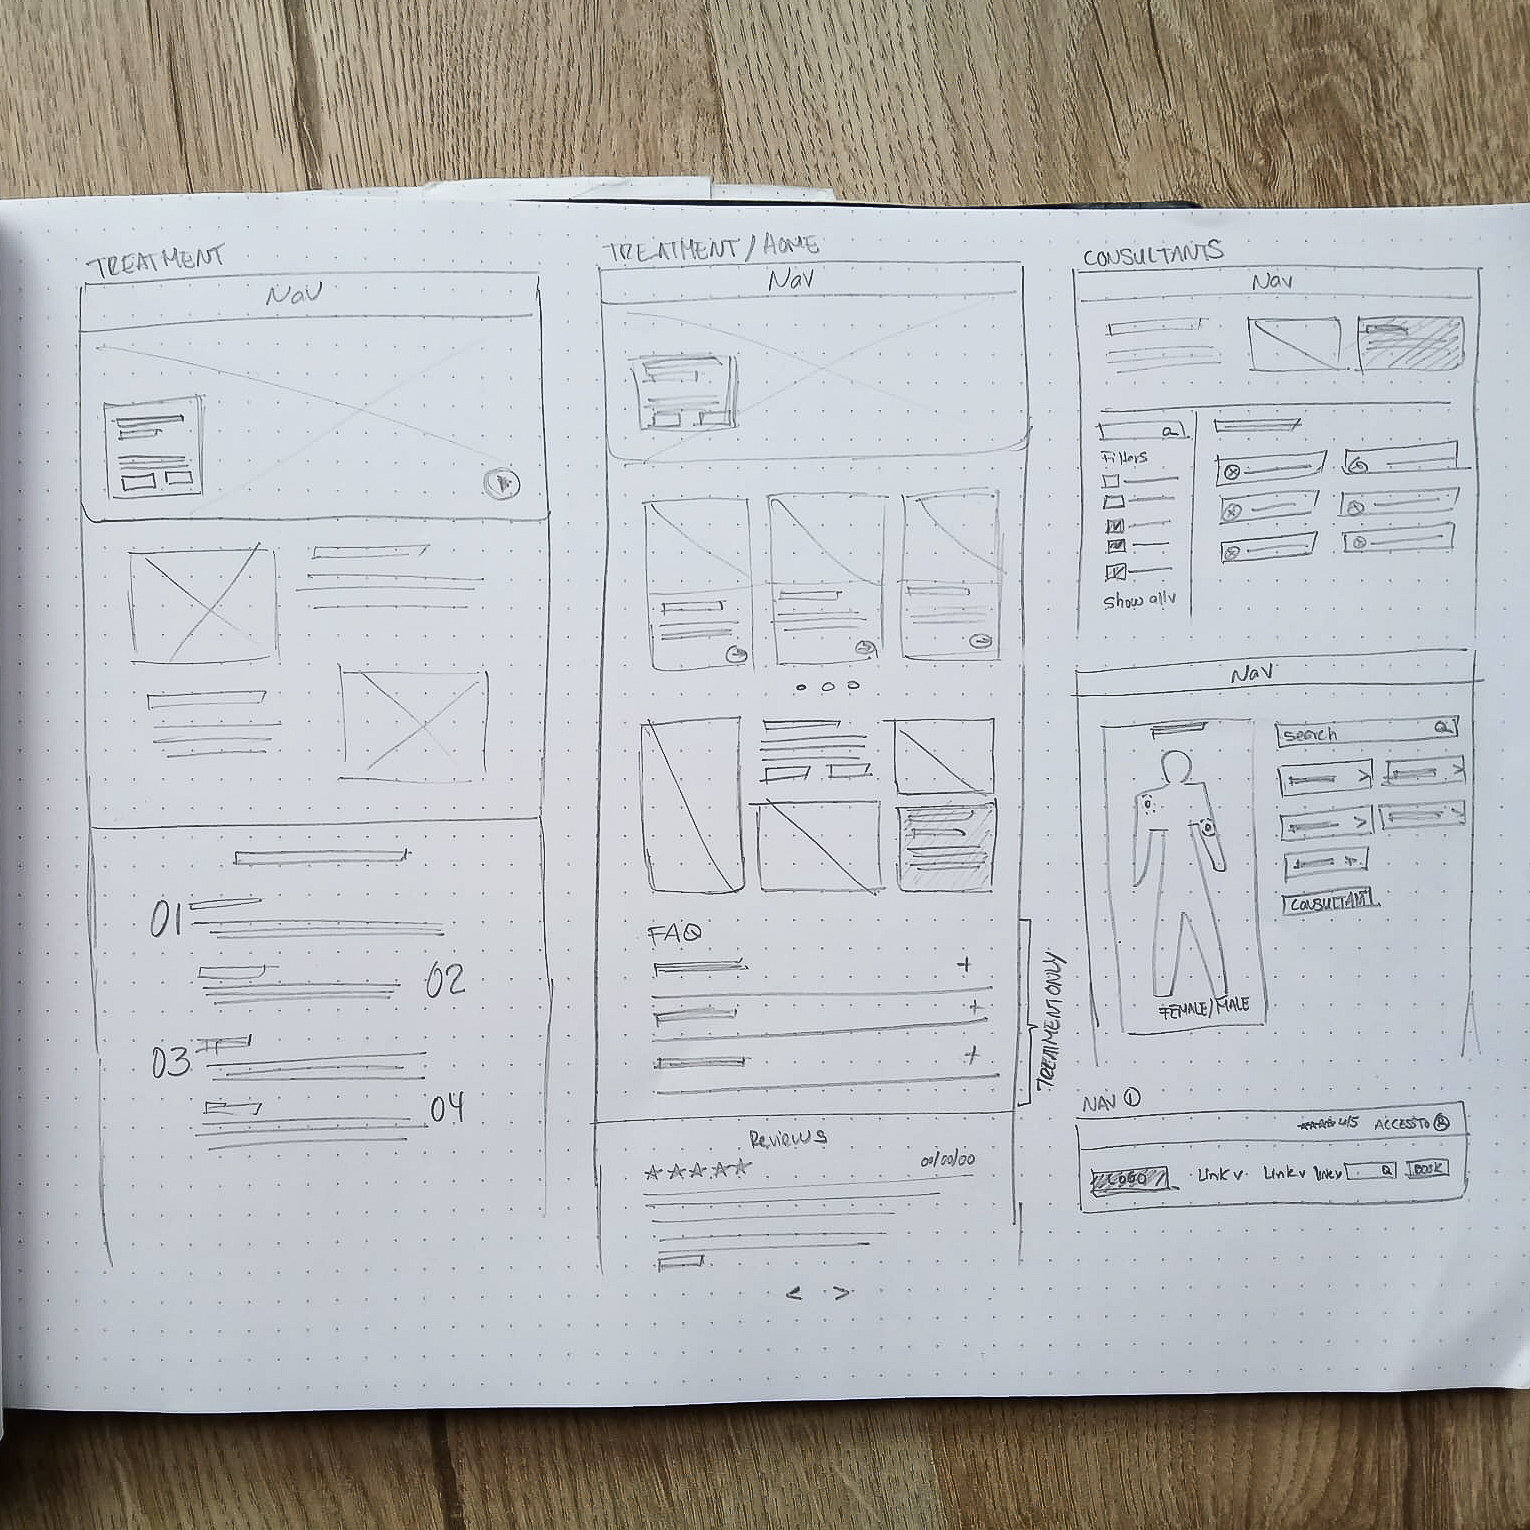 TREATMENT
Nav
01
02
03
04
TREATMENT / HOME
Nav
FAQ
+
+
+
TREATMENT ONLY
Reviews
00/00/00
< >
CONSULTANTS
Nav
Filters
Show all v
Nav
search
>
>
>
>
CONSULTANT
FEMALE/MALE
NAV 1
4/5 ACCESS TO
LOGO Link v Link v Link v BOOK